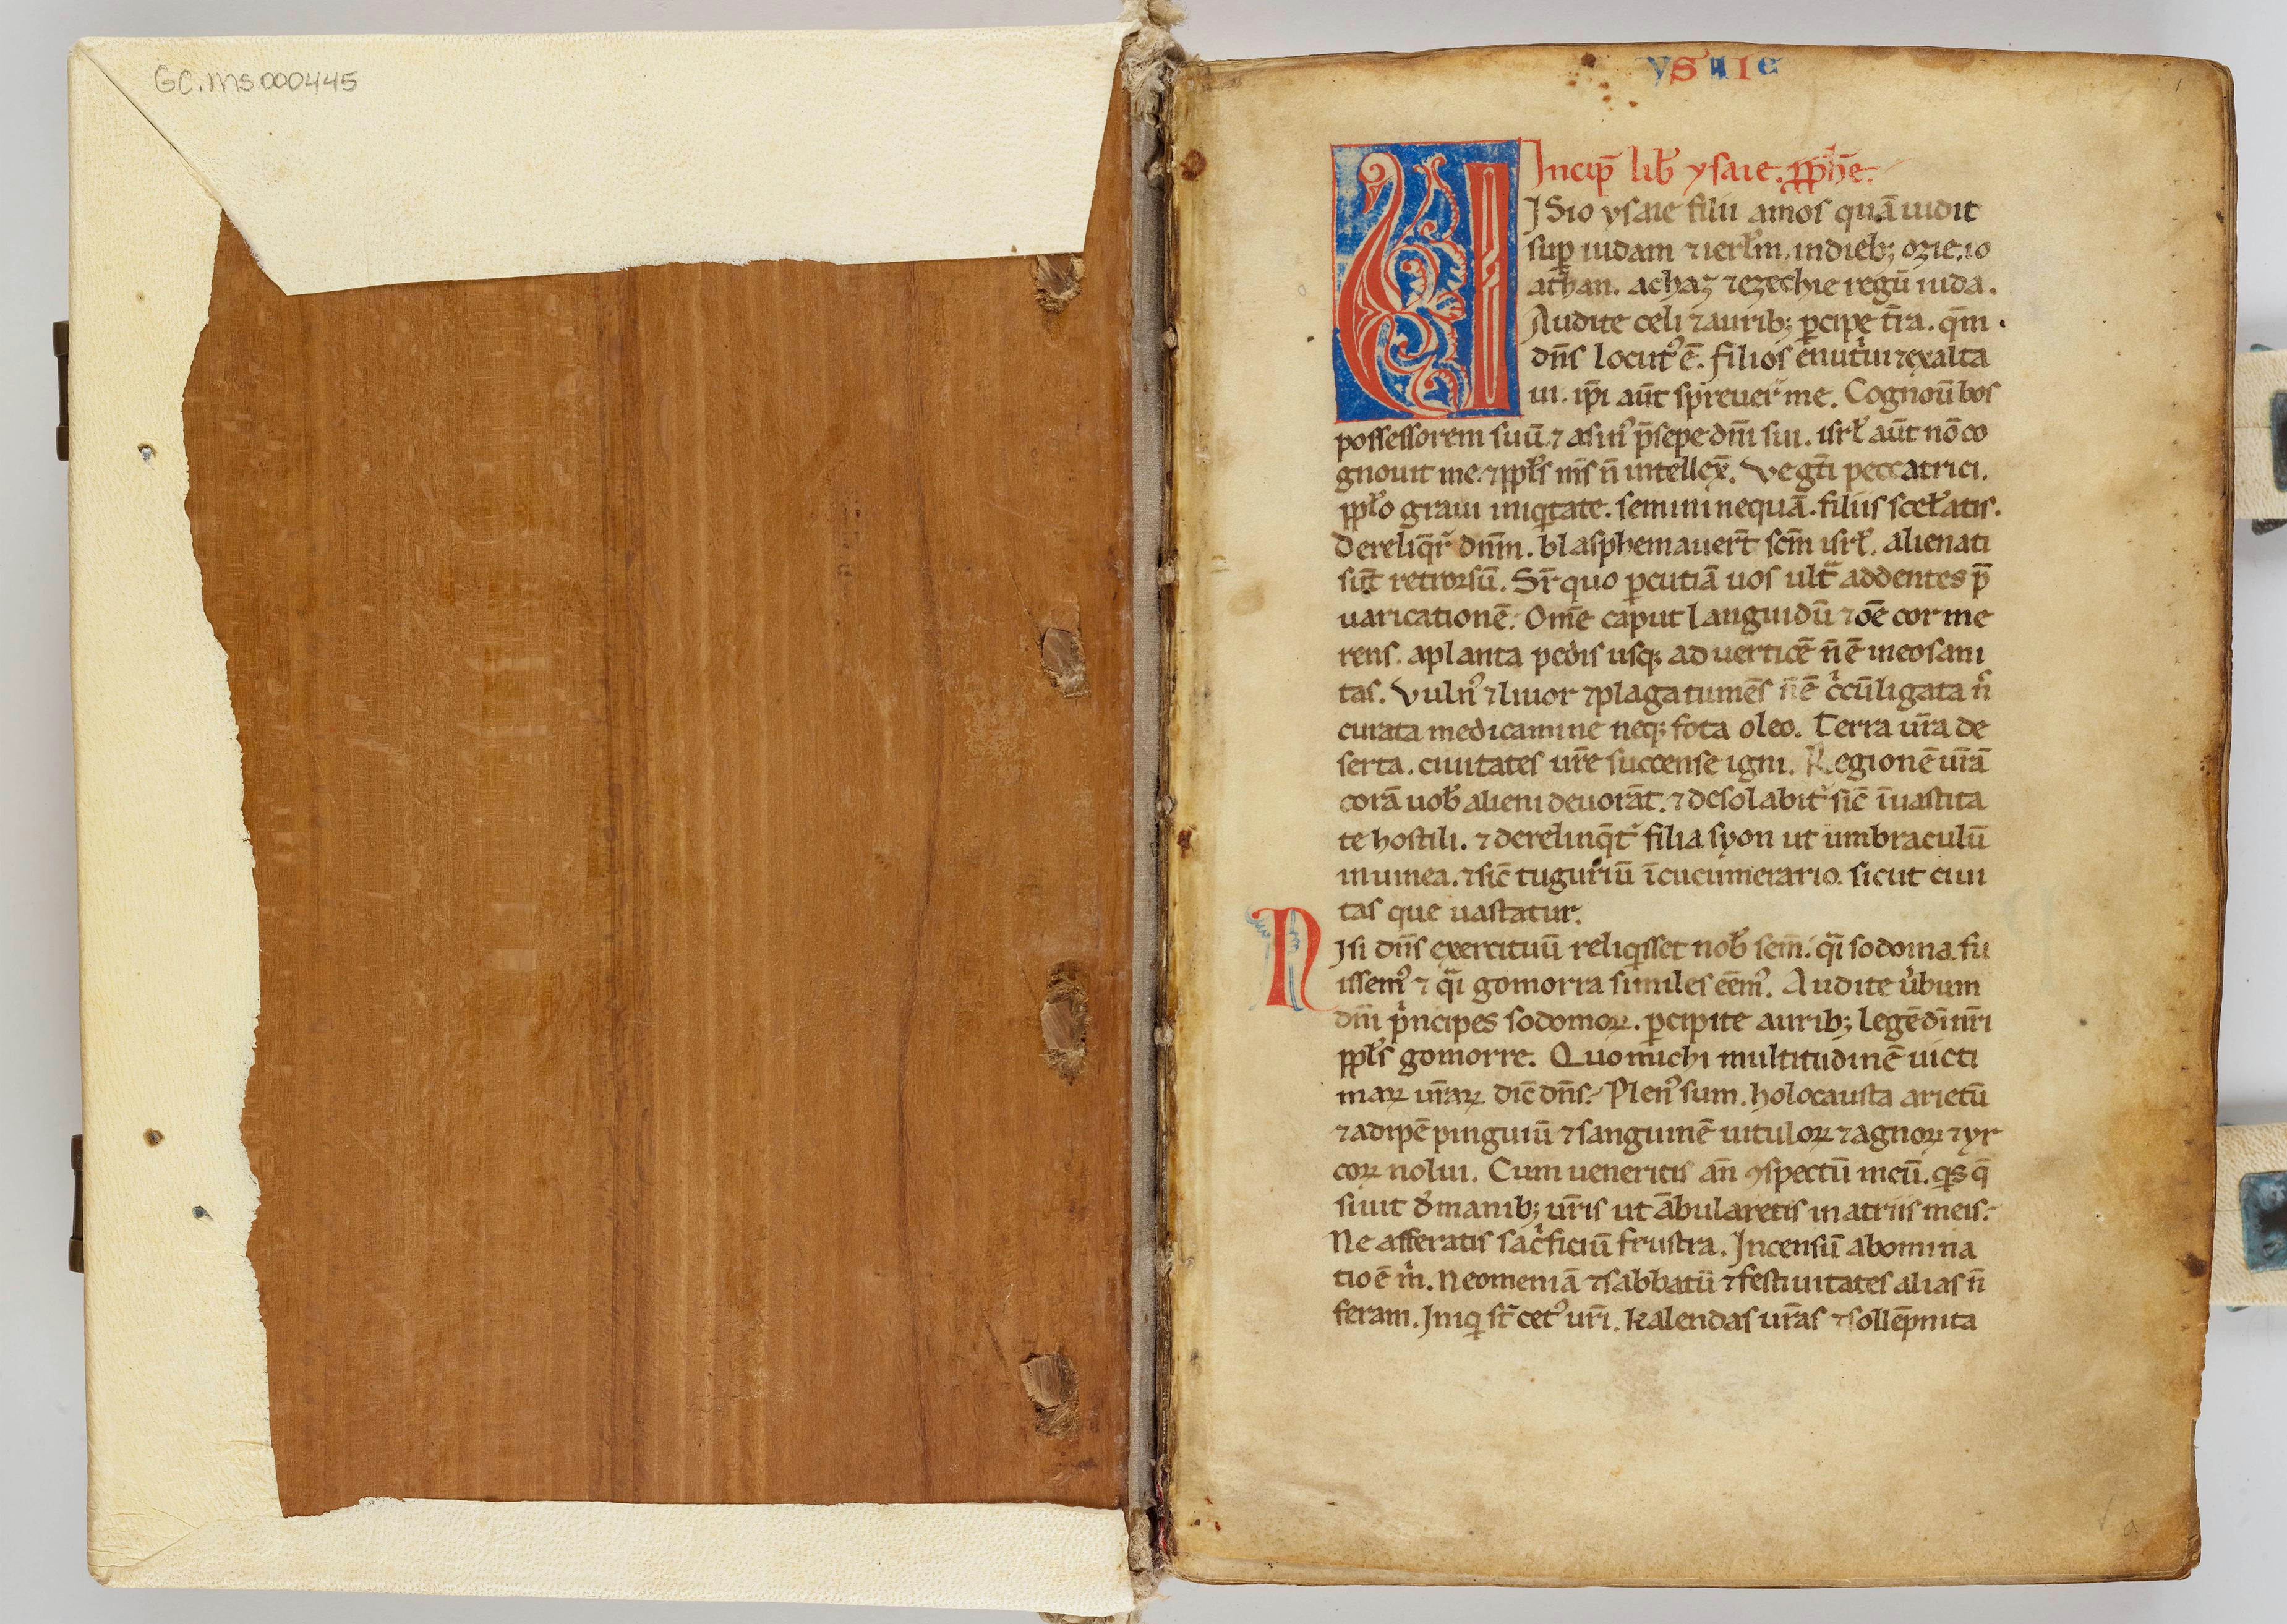 GC.MS.000445
ySaIe
1
Incip̄ lib̄ ysaie. ꝓph̄e.
VISio ysaie filii amos quā uidit
suꝑ iudam ⁊ ierl̄m. in dieb; ozie. io
athan. achaz ⁊ ezechie regū iuda.
Audite celi ⁊ aurib; ꝑcipe t̄ra. qm̄.
dn̄s locut᷒ ē. filios enutͥui ⁊ exalta
ui. ip̄i aūt spreuer̄ me. Cognouͥ bos
possessorem suū. ⁊ asin᷒ p̄sepe dn̄i sui. isrl̄ aūt nō co
gnouit me. ⁊ ppl̄s ms̄ n̄ intellex̄. Ve gn̄ti peccatrici.
ppl̄o graui iniqͥtate. semini nequā. filiis scel̄atis.
Dereliq̄rͭ dn̄m. blasphemauer̄t scm̄ isrl̄. alienati
sūt retrorsū. Sr̄ quo ꝑcutiā uos ultᷓ addentes p̄
uaricationē. Om̄e caput languidū ⁊ oē cor me
rens. a planta pedis usq; ad uerticē n̄ ē in eo sani
tas. Vuln᷒ ⁊ liuor ⁊ plaga tumēs n̄ ē cͥcūligata n̄
curata medicamine neq; fota oleo. Terra ur̄a de
serta. ciuitates ur̄e succense igni. Regionē ur̄ā
corā uob̄ alieni deuorāt. ⁊ desolabit᷑ sic̄ ī uastita
te hostili. ⁊ derelinq̄t᷑ filia syon ut umbraculū
in uinea. ⁊ sic̄ tuguriū ī cucumerario. sicut ciui
tas que uastatur.
NIsi dn̄s exercituū reliqͥsset nob̄ sem̄. qᷓi sodoma fu
issem᷒ ⁊ qᷓi gomorra similes eēm᷒. Audite u̓bum
dn̄i pͥncipes sodomoꝝ. ꝑcipite aurib; legē dī nr̄i
ppl̄s gomorre. Quo michi multitudinē uicti
maꝝ ur̄aꝝ dic̄ dn̄s. Plen᷒ sum. holocausta arietū
⁊ adipē pinguiū ⁊ sanguinē uituloꝝ ⁊ agnoꝝ ⁊ yr
coꝝ nolui. Cum ueneritis an̄ ꝯspectū meū. qͥs q̄
siuit d̓ manib; ur̄is ut ābularetis in atriis meis.
Ne afferatis sacͥficiū frustra. Incensū abomina
tio ē mͥ. Neomeniā ⁊ sabbatū ⁊ festiuitates alias n̄
feram. Iniqͥ st̄ cet᷒ ur̄i. kalendas ur̄as ⁊ sollēpnita